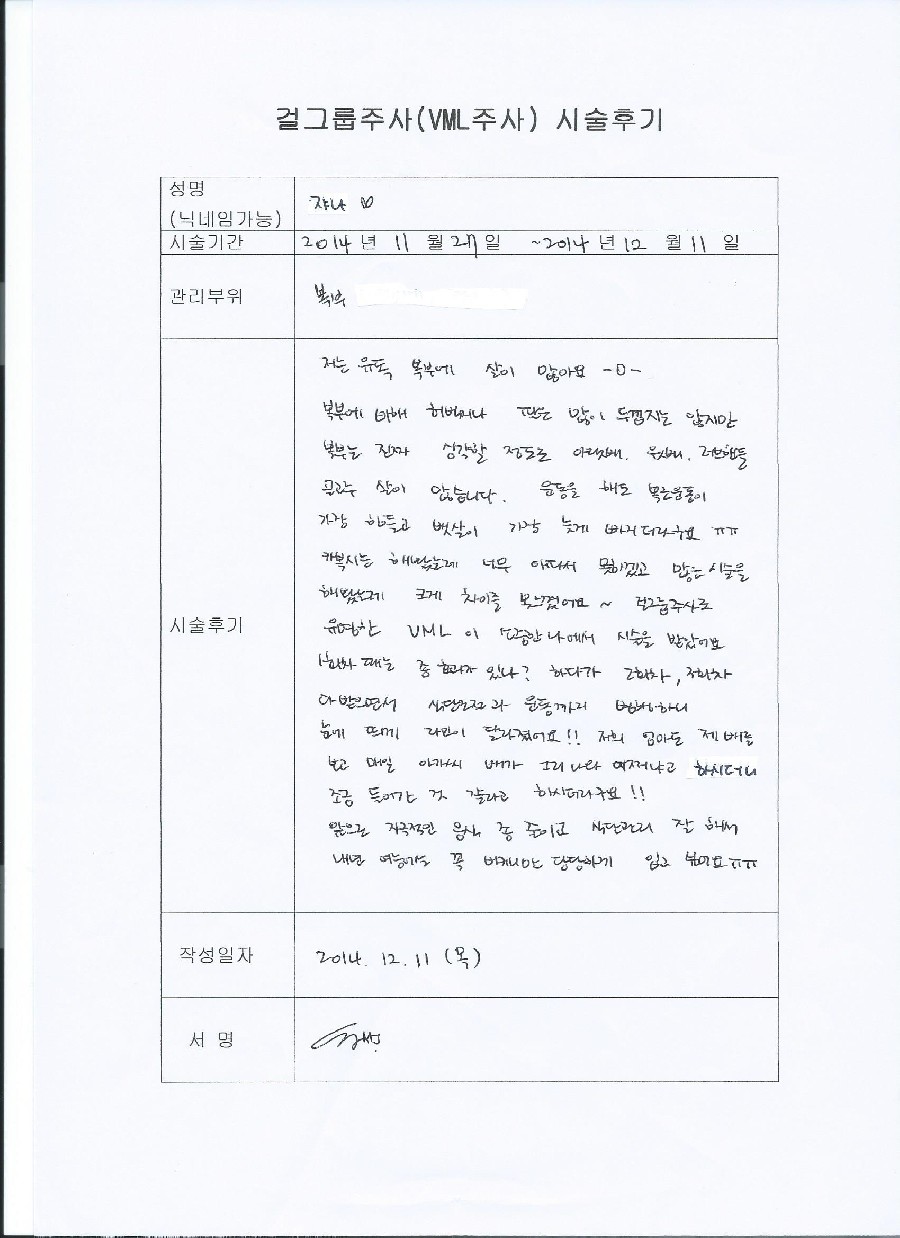 걸그룹주사(VML주사) 시술후기
성명
(닉네임가능)
쟈나 ♡
시술기간
2014 년 11 월 27 일 ~2014 년 12 월 11 일
관리부위
복부
시술후기
저는 유독 복부에 살이 많아요 -0-
복부에 비해 허벅지나 팔은 많이 두껍지는 않지만
복부는 진짜 심각할 정도로 아랫배, 윗배, 러브핸들
골고루 살이 많습니다. 운동을 해도 복근운동이
가장 힘들고 뱃살이 가장 늦게 빠지더라구요 ㅠㅠ
카복시는 해봤는데 너무 아파서 못하겠고 많은 시술을
해봤는데 크게 차이를 못느꼈어요 ~ 걸그룹주사로
유명한 VML 이 시술을 받았어요
1회차 때는 좀 효과가 있나? 하다가 2회차, 3회차
다 받으면서 식단조절과 운동까지 병행하니
눈에 띄게 라인이 달라졌어요!! 저희 엄마도 제 배를
보고 매일 아가씨 배가 그리 나와 어쩌냐고 하시더니
조금 들어간 것 같라고 하시더라구요!!
앞으로 자극적인 음식 좀 줄이고 식단관리 잘 해서
내년 여름에는 꼭 비키니만 당당하게 입고 싶어요ㅠㅠ
작성일자
2014. 12. 11 (목)
서 명